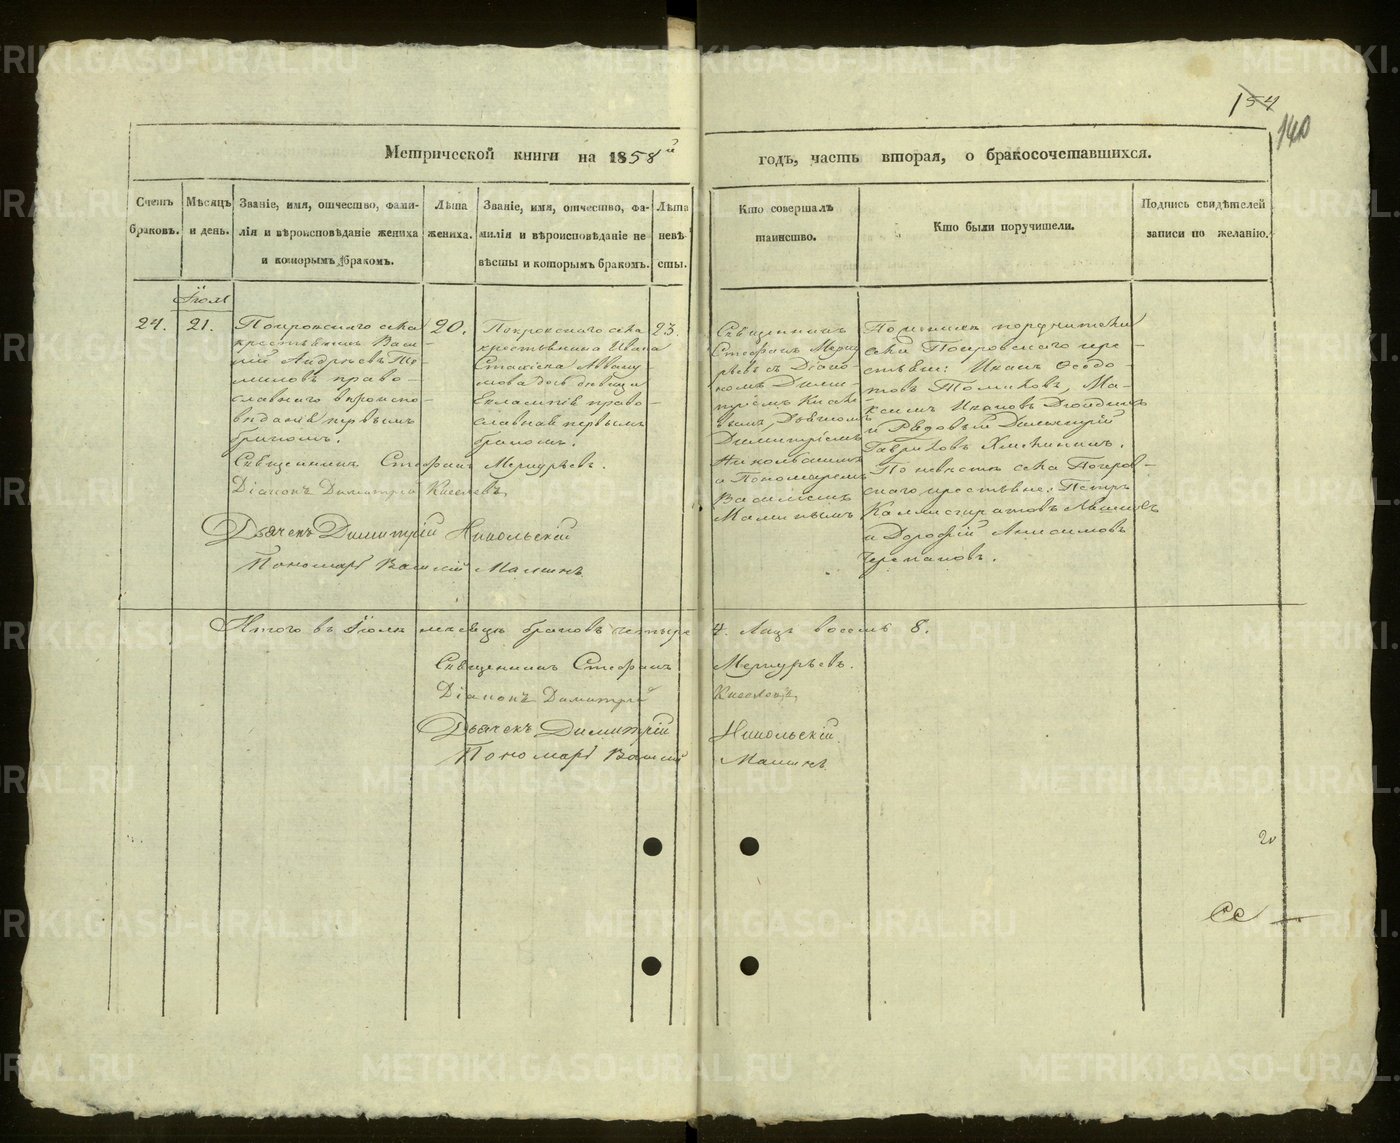 154
140
Метрической книги на 1858й годъ, часть вторая, о бракосочетавшихся.
Счетъ браковъ.
Мѣсяцъ и день.
Званіе, имя, отчество, фами-
лія и вѣроисповѣданіе жениха
и которымъ бракомъ.
Лѣта жениха.
Званіе, имя, отчество, фа-
милія и вѣроисповѣданіе не
вѣсты и которымъ бракомъ.
Лѣта невѣ
сты.
Кто совершалъ
таинство.
Кто были поручители.
Подпись свидѣтелей
записи по желанію.
Іюля
24.
21.
Покровскаго села
крестьянинъ Васи-
лій Андреевъ То-
миловъ право-
славнаго вѣроиспо-
вѣданія первымъ
бракомъ.
20.
Покровскаго села
крестьянина Ивана
Авваку-
мова дочь дѣвица
Евлампія право-
славная первымъ
бракомъ.
23.
Священникъ
Стефанъ Мерку
рьевъ съ Діако
номъ Дими-
тріемъ Кисѣле
вымъ, Дьячкомъ
Димитріемъ
Никольскимъ
и Пономаремъ
Василіемъ
Малинымъ
По женихѣ поручители
села Покровскаго кре-
стьяне: Иванъ Ѳедо-
товъ Томиловъ, Ма-
ксимъ Ивановъ
и Рядовый Димитрій
Гавриловъ
По невѣстѣ села Покров-
скаго крестьяне: Петръ
Каллистратовъ
и Дорофій Анисимовъ
Черепановъ.
Священникъ Стефанъ Меркурьевъ.
Діаконъ Димитрій Киселевъ
Дьячекъ Димитрій Никольскій
Пономарь Василій Малинъ
Итого въ Іюлѣ мѣсяцѣ браковъ четыре 4. Лицъ восемь 8.
Священникъ Стефанъ Меркурьевъ.
Діаконъ Димитрій Киселевъ
Дьячекъ Димитрій Никольскій.
Пономарь Василій Малинъ.
METRIKI.GASO-URAL.RU